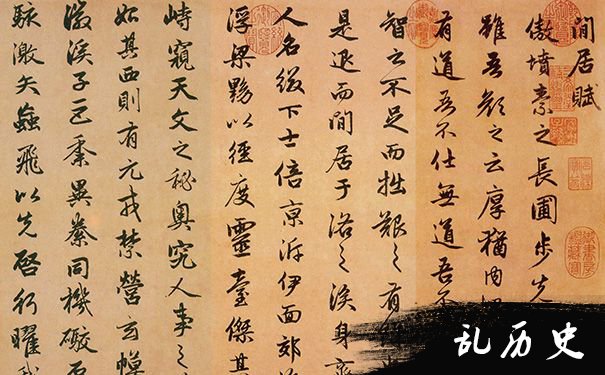 閒居賦
傲墳素之長圃步先
雖吾顏之云厚猶内
有道吾不仕無道吾不
智之不足而拙艱之有
是退而閒居于洛之涘身齊
人名綴下士倍京泝伊面郊
浮梁黝以徑度靈臺傑其
峙窺天文之秘奧究人事之
如其西則有元戎禁營玄幙
徽溪子巨黍異絭同機礮石
駭激矢蝱飛以先啓行曜我
乱历史